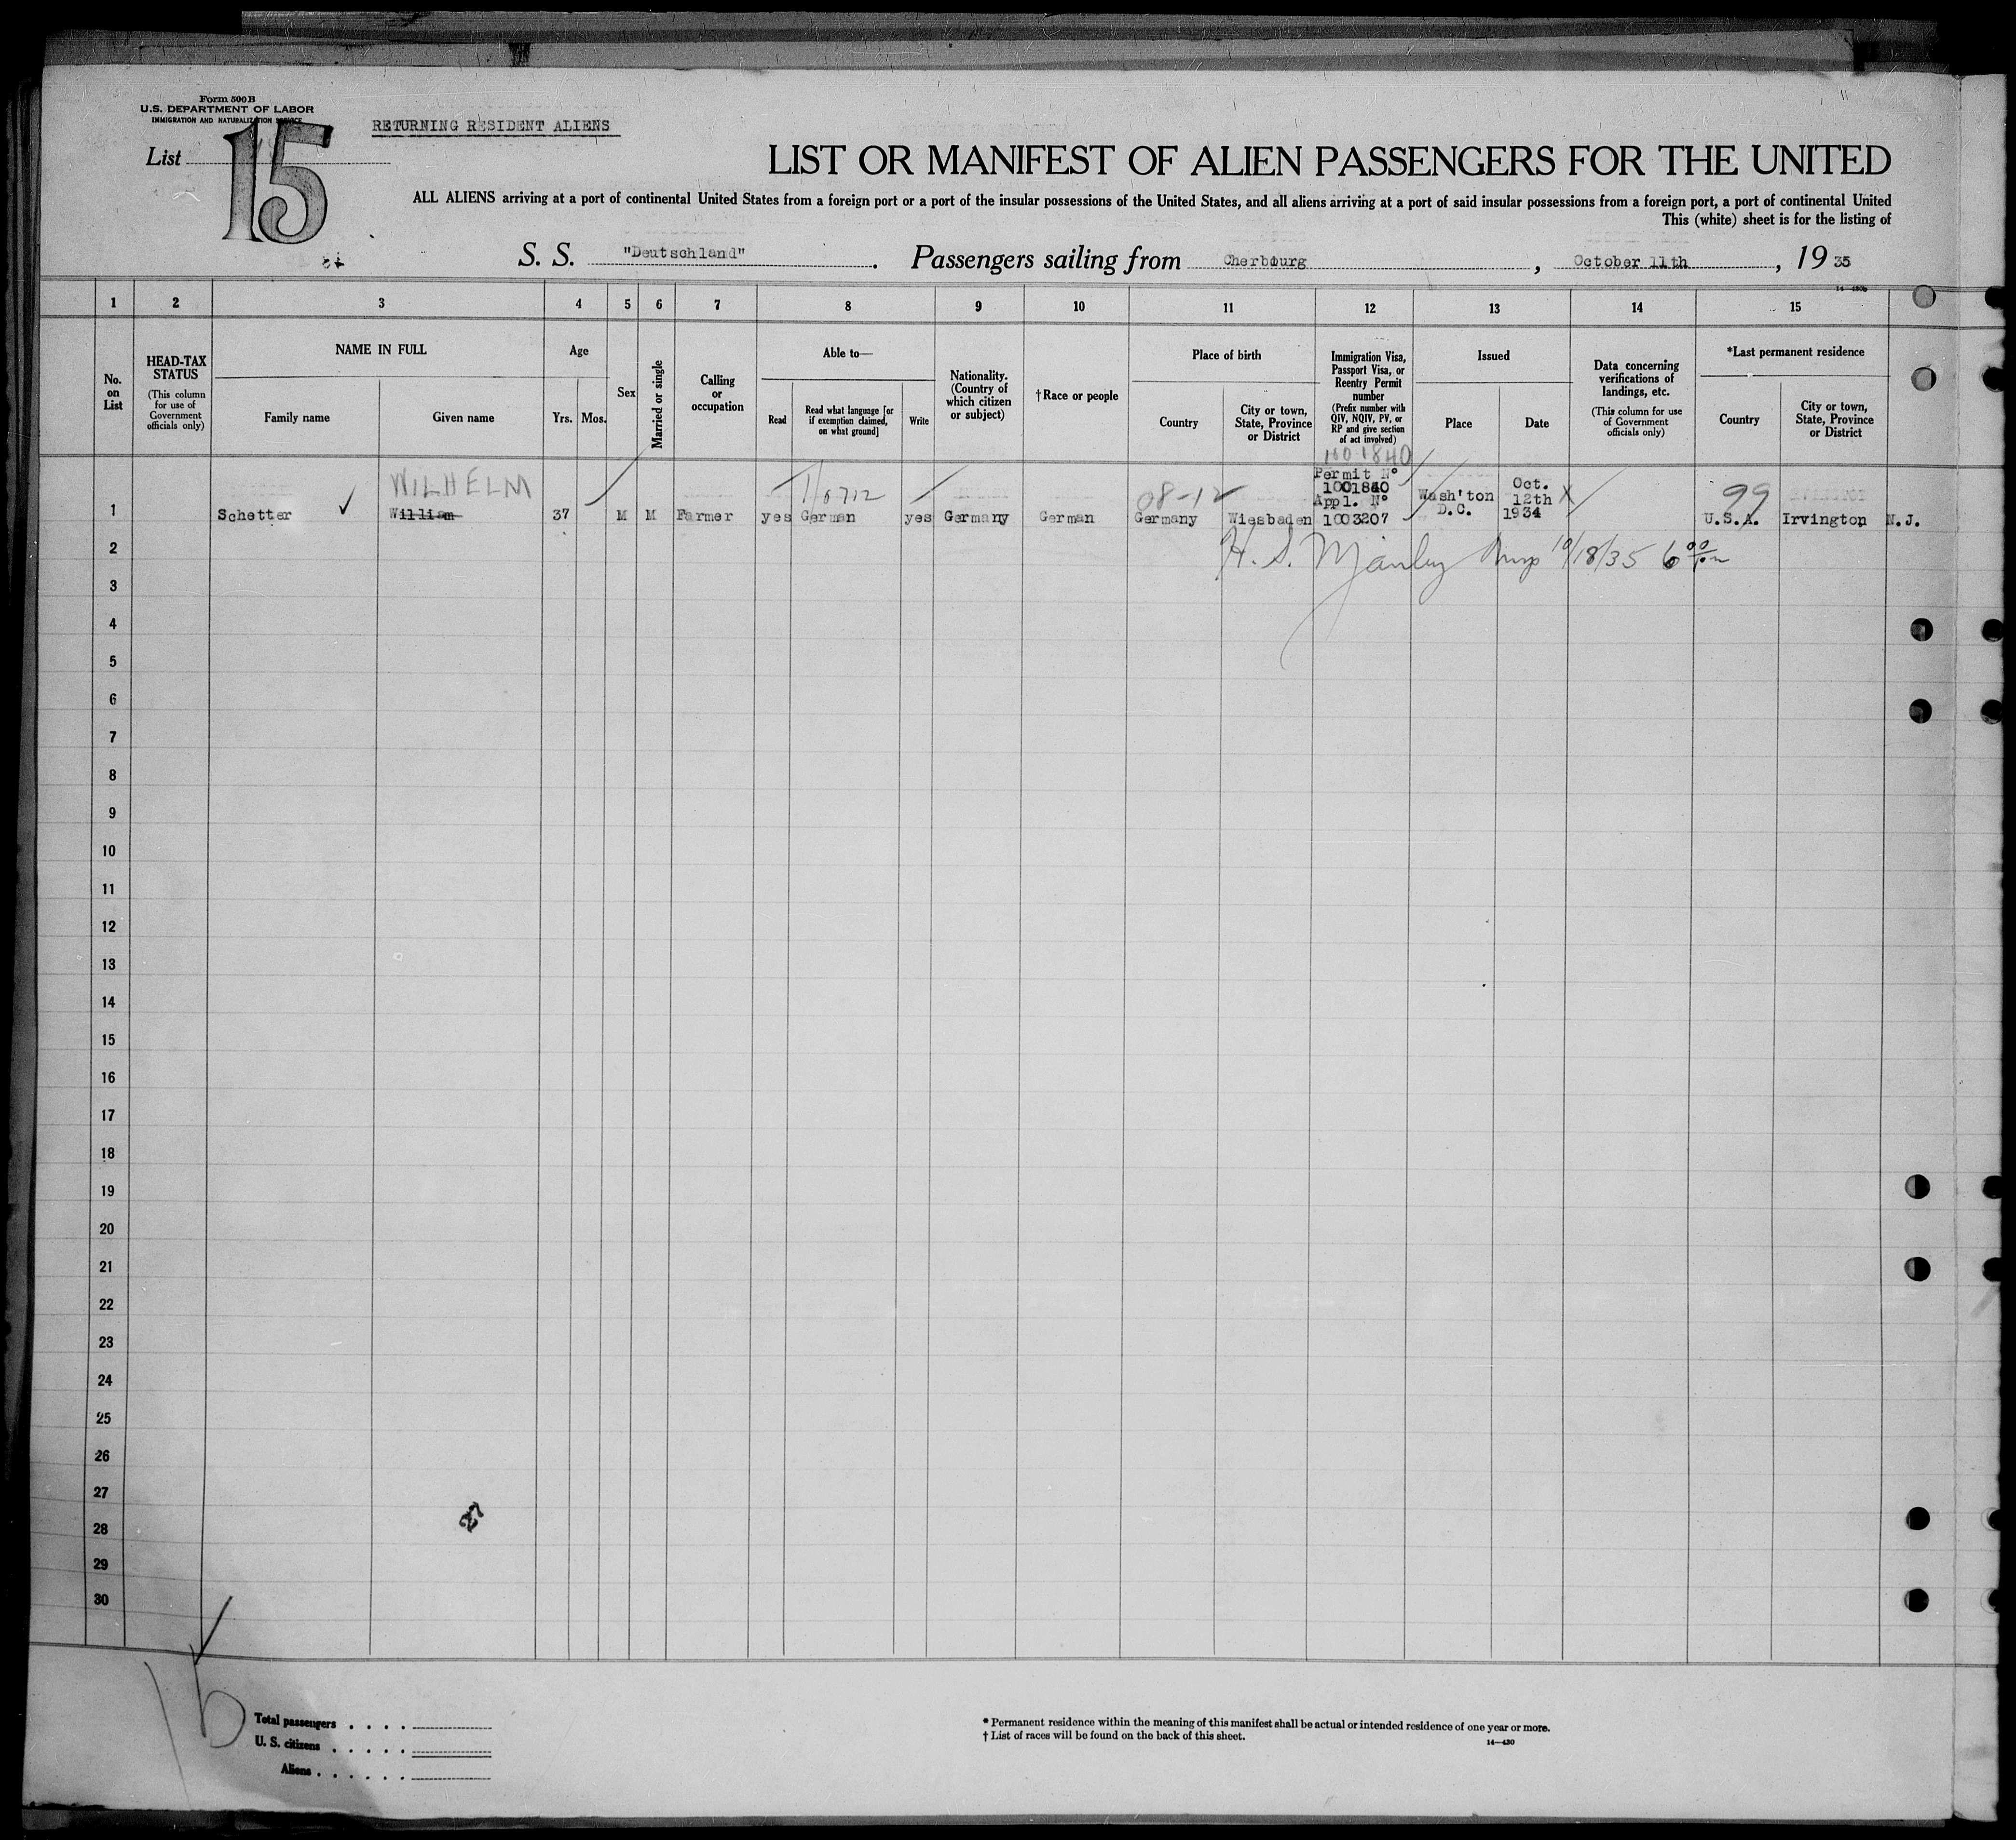 Form 500B
U.S. DEPARTMENT OF LABOR
IMMIGRATION AND NATURALIZATION SERVICE
RETURNING RESIDENT ALIENS
List 15
LIST OR MANIFEST OF ALIEN PASSENGERS FOR THE UNITED
ALL ALIENS arriving at a port of continental United States from a foreign port or a port of the insular possessions of the United States, and all aliens arriving at a port of said insular possessions from a foreign port, a port of continental United
This (white) sheet is for the listing of
S. S. "Deutschland". Passengers sailing from Cherbourg, October 11th, 1935
14—430b
1 2 3 4 5 6 7 8 9 10 11 12 13 14 15
No. on List
HEAD-TAX STATUS
(This column for use of Government officials only)
NAME IN FULL
Family name
Given name
Age
Yrs.
Mos.
Sex
Married or single
Calling or occupation
Able to—
Read
Read what language [or if exemption claimed, on what ground]
Write
Nationality. (Country of which citizen or subject)
†Race or people
Place of birth
Country
City or town, State, Province or District
Immigration Visa, Passport Visa, or Reentry Permit number
(Prefix number with QIV, NQIV, PV, or RP and give section of act involved)
Issued
Place
Date
Data concerning verifications of landings, etc.
(This column for use of Government officials only)
*Last permanent residence
Country
City or town, State, Province or District
1001840
WILHELM
08-12
99
1 Schetter William 37 M M Farmer yes German yes Germany German Germany Wiesbaden Permit Nº 1001840 Appl. Nº 1003207 Wash'ton D.C. Oct. 12th 1934 U.S.A. Irvington N.J.
H. S. Manley 10/18/35 6 00 pm
2
3
4
5
6
7
8
9
10
11
12
13
14
15
16
17
18
19
20
21
22
23
24
25
26
27
28
29
30
27
Total passengers
U. S. citizens
Aliens
* Permanent residence within the meaning of this manifest shall be actual or intended residence of one year or more.
† List of races will be found on the back of this sheet.
14—430